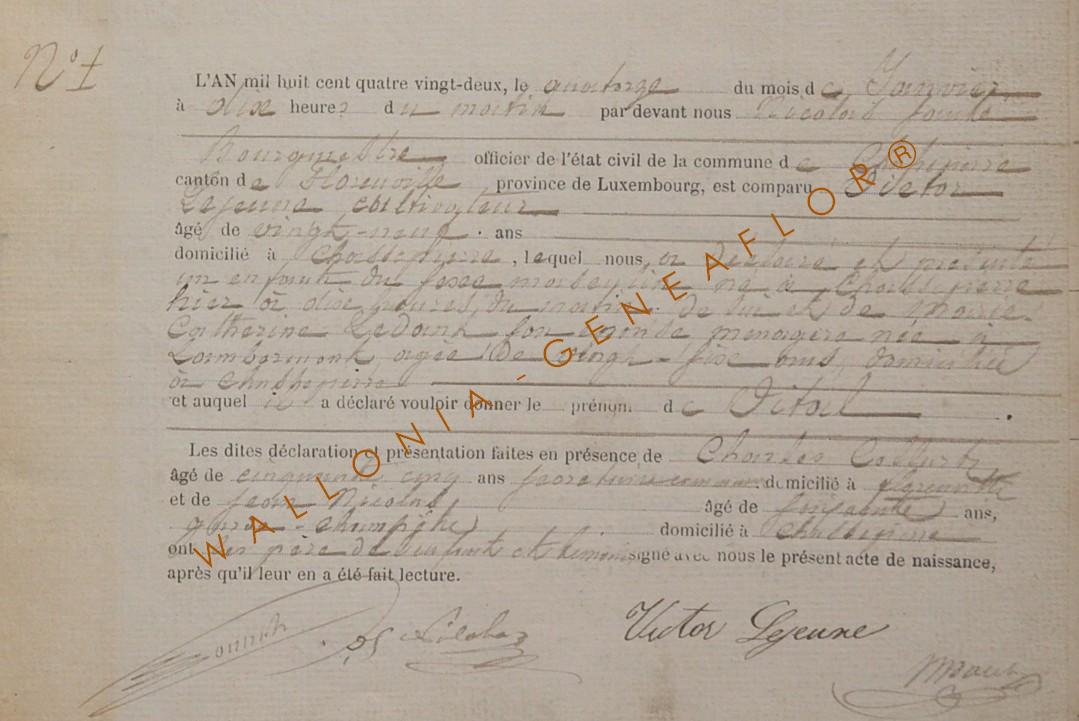 N° 1
L'AN mil huit cent quatre vingt-deux, le quatorze du mois de Janvier
à dix heures du matin par devant nous Nicolas
Bourgmestre officier de l'état civil de la commune de Chassepierre
canton de Florenville province de Luxembourg, est comparu Victor
Lejeune cultivateur
âgé de vingt-neuf ans
domicilié à Chassepierre, lequel nous a déclaré et présenté
un enfant du sexe masculin né à Chassepierre
hier à dix heures du matin de lui et de Marie
Catherine Ledant son épouse ménagère née à
Lambermont agée de vingt-six ans, domiciliée
à Chassepierre
et auquel il a déclaré vouloir donner le prénom de
Les dites déclaration et présentation faites en présence de Charles
âgé de cinquante cinq ans secrétaire domicilié à
et de Jean Nicolas âgé de soixante ans,
garde-champêtre domicilié à Chassepierre
ont les père de l'enfant et témoins signé avec nous le présent acte de naissance,
après qu'il leur en a été fait lecture.
Victor Lejeune
WALLONIA-GENEAFLOR®